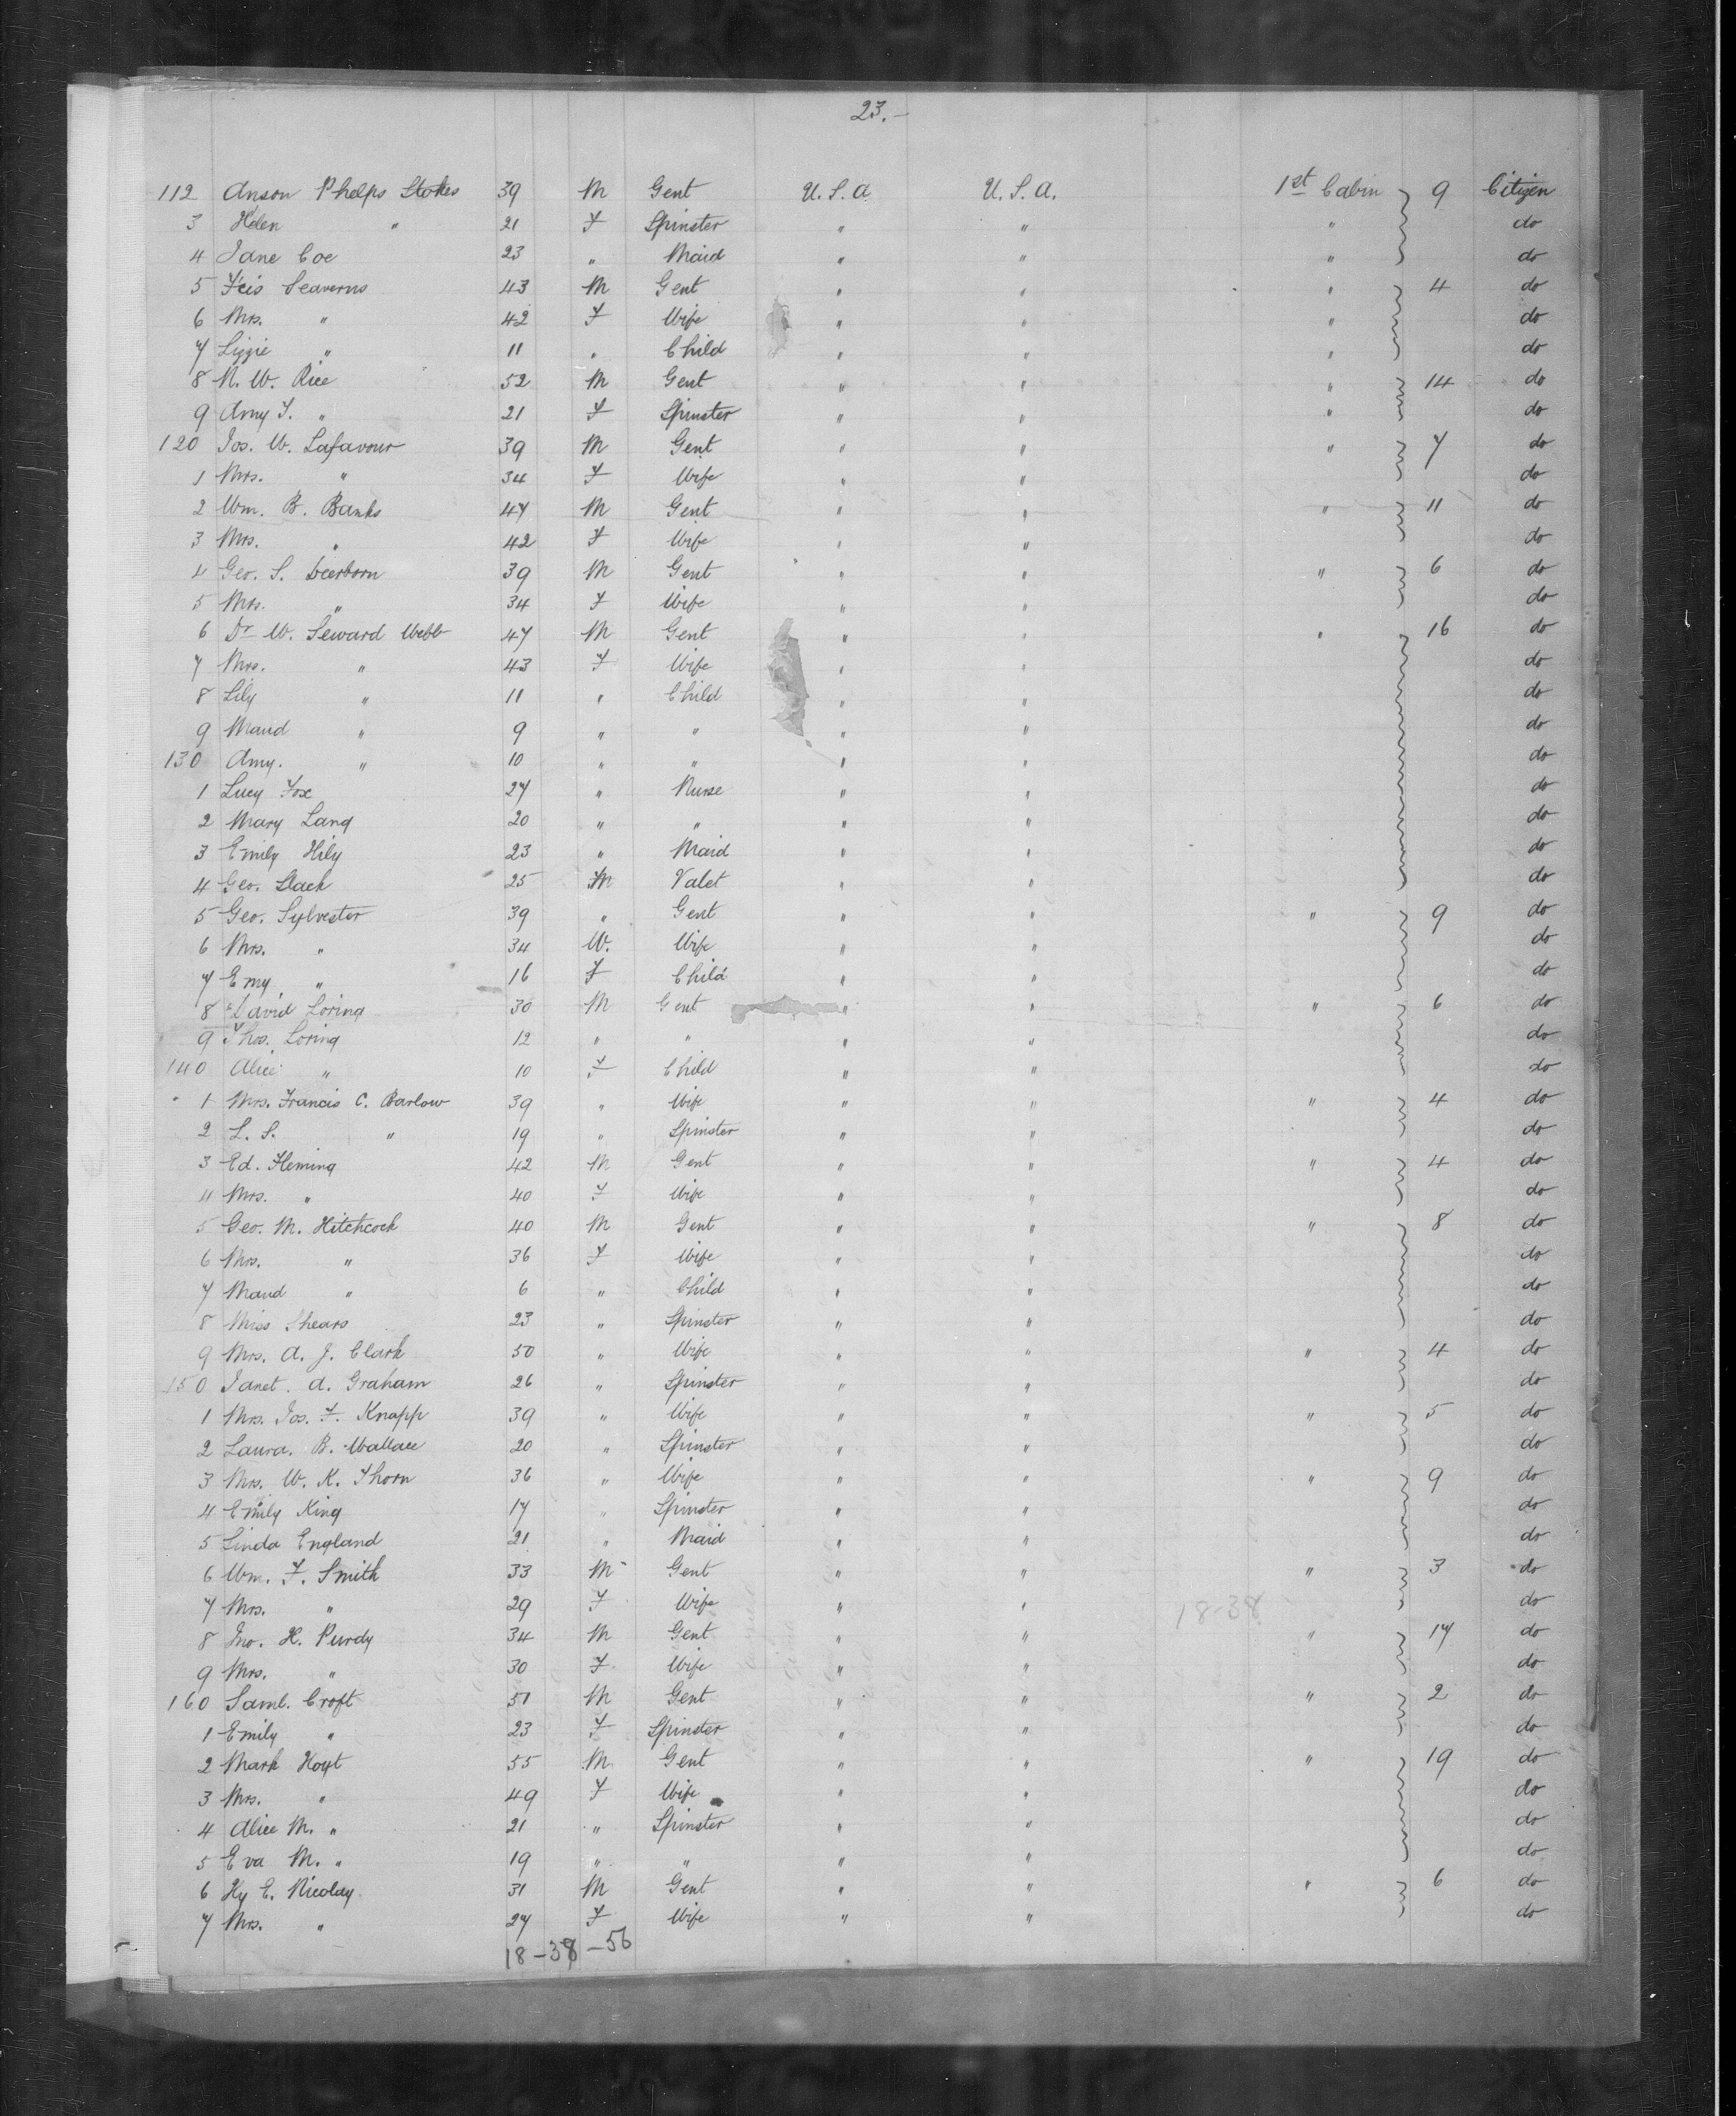 23.-
112 Anson Phelps Stokes 39 M Gent U.S.A. U.S.A. 1st Cabin 9 Citizen
3 Helen " 21 F Spinster " " " do
4 Jane Coe 23 " Maid " " " do
5 Fcis Seaverns 43 M Gent " " " 4 do
6 Mrs. " 42 F Wife " " " do
7 Lizzie " 11 " Child " " " do
8 N. W. Rice 52 M Gent " " " 14 do
9 Amy F. " 21 F Spinster " " " do
120 Jos. W. Lafavour 39 M Gent " " " 7 do
1 Mrs. " 34 F Wife " " do
2 Wm. B. Banks 47 M Gent " " " 11 do
3 Mrs. " 42 F Wife " " do
4 Geo. S. Deerborn 39 M Gent " " " 6 do
5 Mrs. " 34 F Wife " " do
6 Dr W. Seward Webb 47 M Gent " " " 16 do
7 Mrs. " 43 F Wife " " do
8 Lily " 11 " Child " " do
9 Maud " 9 " " " " do
130 Amy. " 10 " " " " do
1 Lucy Fox 27 " Nurse " " do
2 Mary Lang 20 " " " " do
3 Emily Hily 23 " Maid " " do
4 Geo. Slack 25 M Valet " " do
5 Geo. Sylvester 39 " Gent " " " 9 do
6 Mrs. " 34 W. Wife " " do
7 Emy " 16 F Child " " do
8 David Loring 30 M Gent " " " 6 do
9 Thos. Loring 12 " " " " do
140 Alice " 10 F Child " " do
1 Mrs. Francis C. Barlow 39 " Wife " " " 4 do
2 L. S. " 19 " Spinster " " do
3 Ed. Fleming 42 M Gent " " " 4 do
4 Mrs. " 40 F Wife " " do
5 Geo. M. Hitchcock 40 M Gent " " " 8 do
6 Mrs. " 36 F Wife " " do
7 Maud " 6 " Child " " do
8 Miss Shears 23 " Spinster " " do
9 Mrs. A. J. Clark 50 " Wife " " " 4 do
150 Janet. A. Graham 26 " Spinster " " do
1 Mrs. Jos. F. Knapp 39 " Wife " " " 5 do
2 Laura. B. Wallace 20 " Spinster " " do
3 Mrs. W. K. Thorn 36 " Wife " " " 9 do
4 Emily King 17 " Spinster " " do
5 Linda England 21 " Maid " " do
6 Wm. F. Smith 33 M Gent " " " 3 do
7 Mrs. " 29 F Wife " " 18-38 do
8 Jno. H. Purdy 34 M Gent " " " 17 do
9 Mrs. " 30 F Wife " " do
160 Saml. Croft 51 M Gent " " " 2 do
1 Emily " 23 F Spinster " " do
2 Mark Hoyt 55 M Gent " " " 19 do
3 Mrs. " 49 F Wife " " do
4 Alice M. " 21 " Spinster " " do
5 Eva M. " 19 " " " " do
6 Hy E. Nicolay 31 M Gent " " " 6 do
7 Mrs. " 27 F Wife " " do
18-38-56